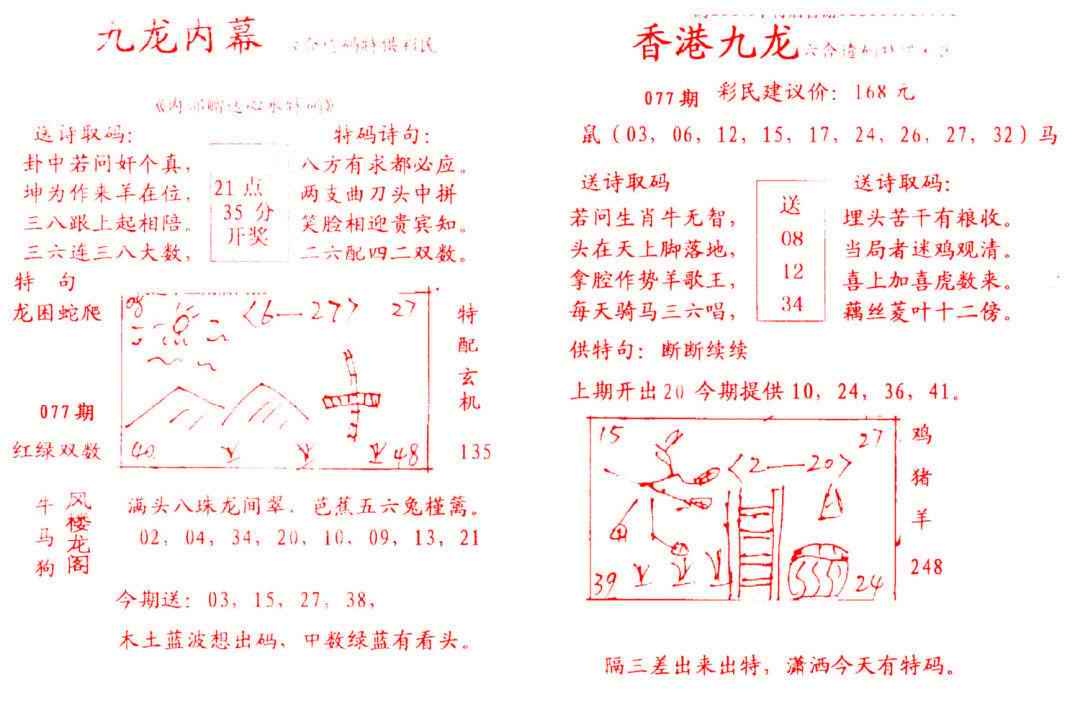 九龙内幕
送诗取码：
卦中若问好个真，
坤为作来羊在位，
三八跟上起相陪。
三六连三八大数，
21点
35分
开奖
特码诗句：
八方有求都必应。
两支曲刀头中拼
笑脸相迎贵宾知。
二六配四二双数。
特 句
龙困蛇爬
077期
红绿双数
08
〈6—27〉
27
40
48
特配玄机
135
牛马狗
风楼龙阁
满头八珠龙间翠．芭蕉五六兔槿篱。
02，04，34，20，10，09，13，21
今期送：03，15，27，38，
木土蓝波想出码、中数绿蓝有看头。
香港九龙
077期 彩民建议价：168元
鼠（03，06，12，15，17，24，26，27，32）马
送诗取码
若问生肖牛无智，
头在天上脚落地，
拿腔作势羊歌王，
每天骑马三六唱，
送
08
12
34
送诗取码：
埋头苦干有粮收。
当局者迷鸡观清。
喜上加喜虎数来。
藕丝菱叶十二傍。
供特句：断断续续
上期开出20 今期提供10，24，36，41。
15
27
〈2—20〉
39
24
鸡猪羊
248
隔三差出来出特，潇洒今天有特码。